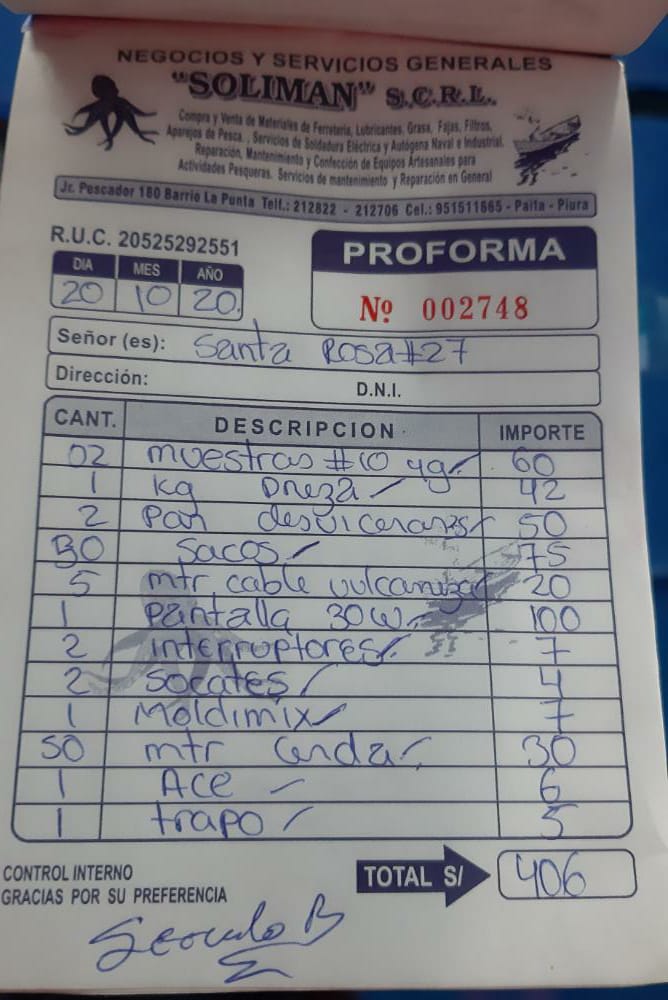 NEGOCIOS Y SERVICIOS GENERALES
"SOLIMAN" S.C.R.L.
Compra y Venta de Materiales de Ferretería, Lubricantes, Grasa, Fajas, Filtros,
Aparejos de Pesca., Servicios de Soldadura Eléctrica y Autógena Naval e Industrial.
Reparación, Mantenimiento y Confección de Equipos Artesanales para
Actividades Pesqueras. Servicios de mantenimiento y Reparación en General
Jr. Pescador 180 Barrio La Punta Telf.: 212822 - 212706 Cel.: 951511665 - Paita - Piura
R.U.C. 20525292551
PROFORMA
DIA MES AÑO
20 10 20.
Nº 002748
Señor (es): Santa Rosa #27
Dirección: D.N.I.
CANT. DESCRIPCION IMPORTE
02 muestras #10 60
1 kg 42
2 Pan 50
30 Sacos 75
5 mtr cable 20
1 Pantalla 30W 100
2 interruptores 7
2 Socates 4
1 Moldimix 7
50 mtr 30
1 Ace 6
1 trapo 5
CONTROL INTERNO
GRACIAS POR SU PREFERENCIA
TOTAL S/ 406